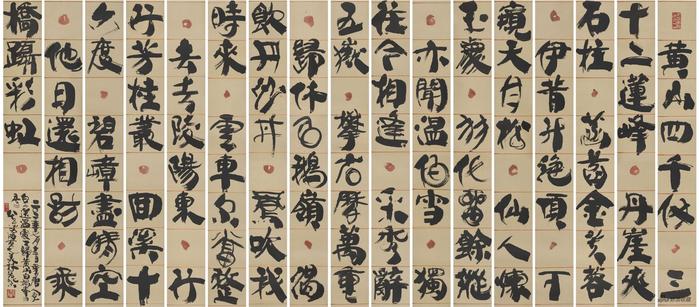 黃山四千仞三
十二蓮峰丹崖夾
石柱菡萏金芙蓉
伊昔升絕頂下
窺天目松仙人煉
玉處羽化留餘蹤
亦聞溫伯雪獨
往今相逢采秀辭
五嶽攀岩歷萬重
歸休白鵝嶺渴
飲丹沙井鳳吹我
時來雲車尔當整
去去陵陽東行
行芳桂叢回溪十
六度碧嶂盡晴空
他日還相訪乘
橋躡彩虹